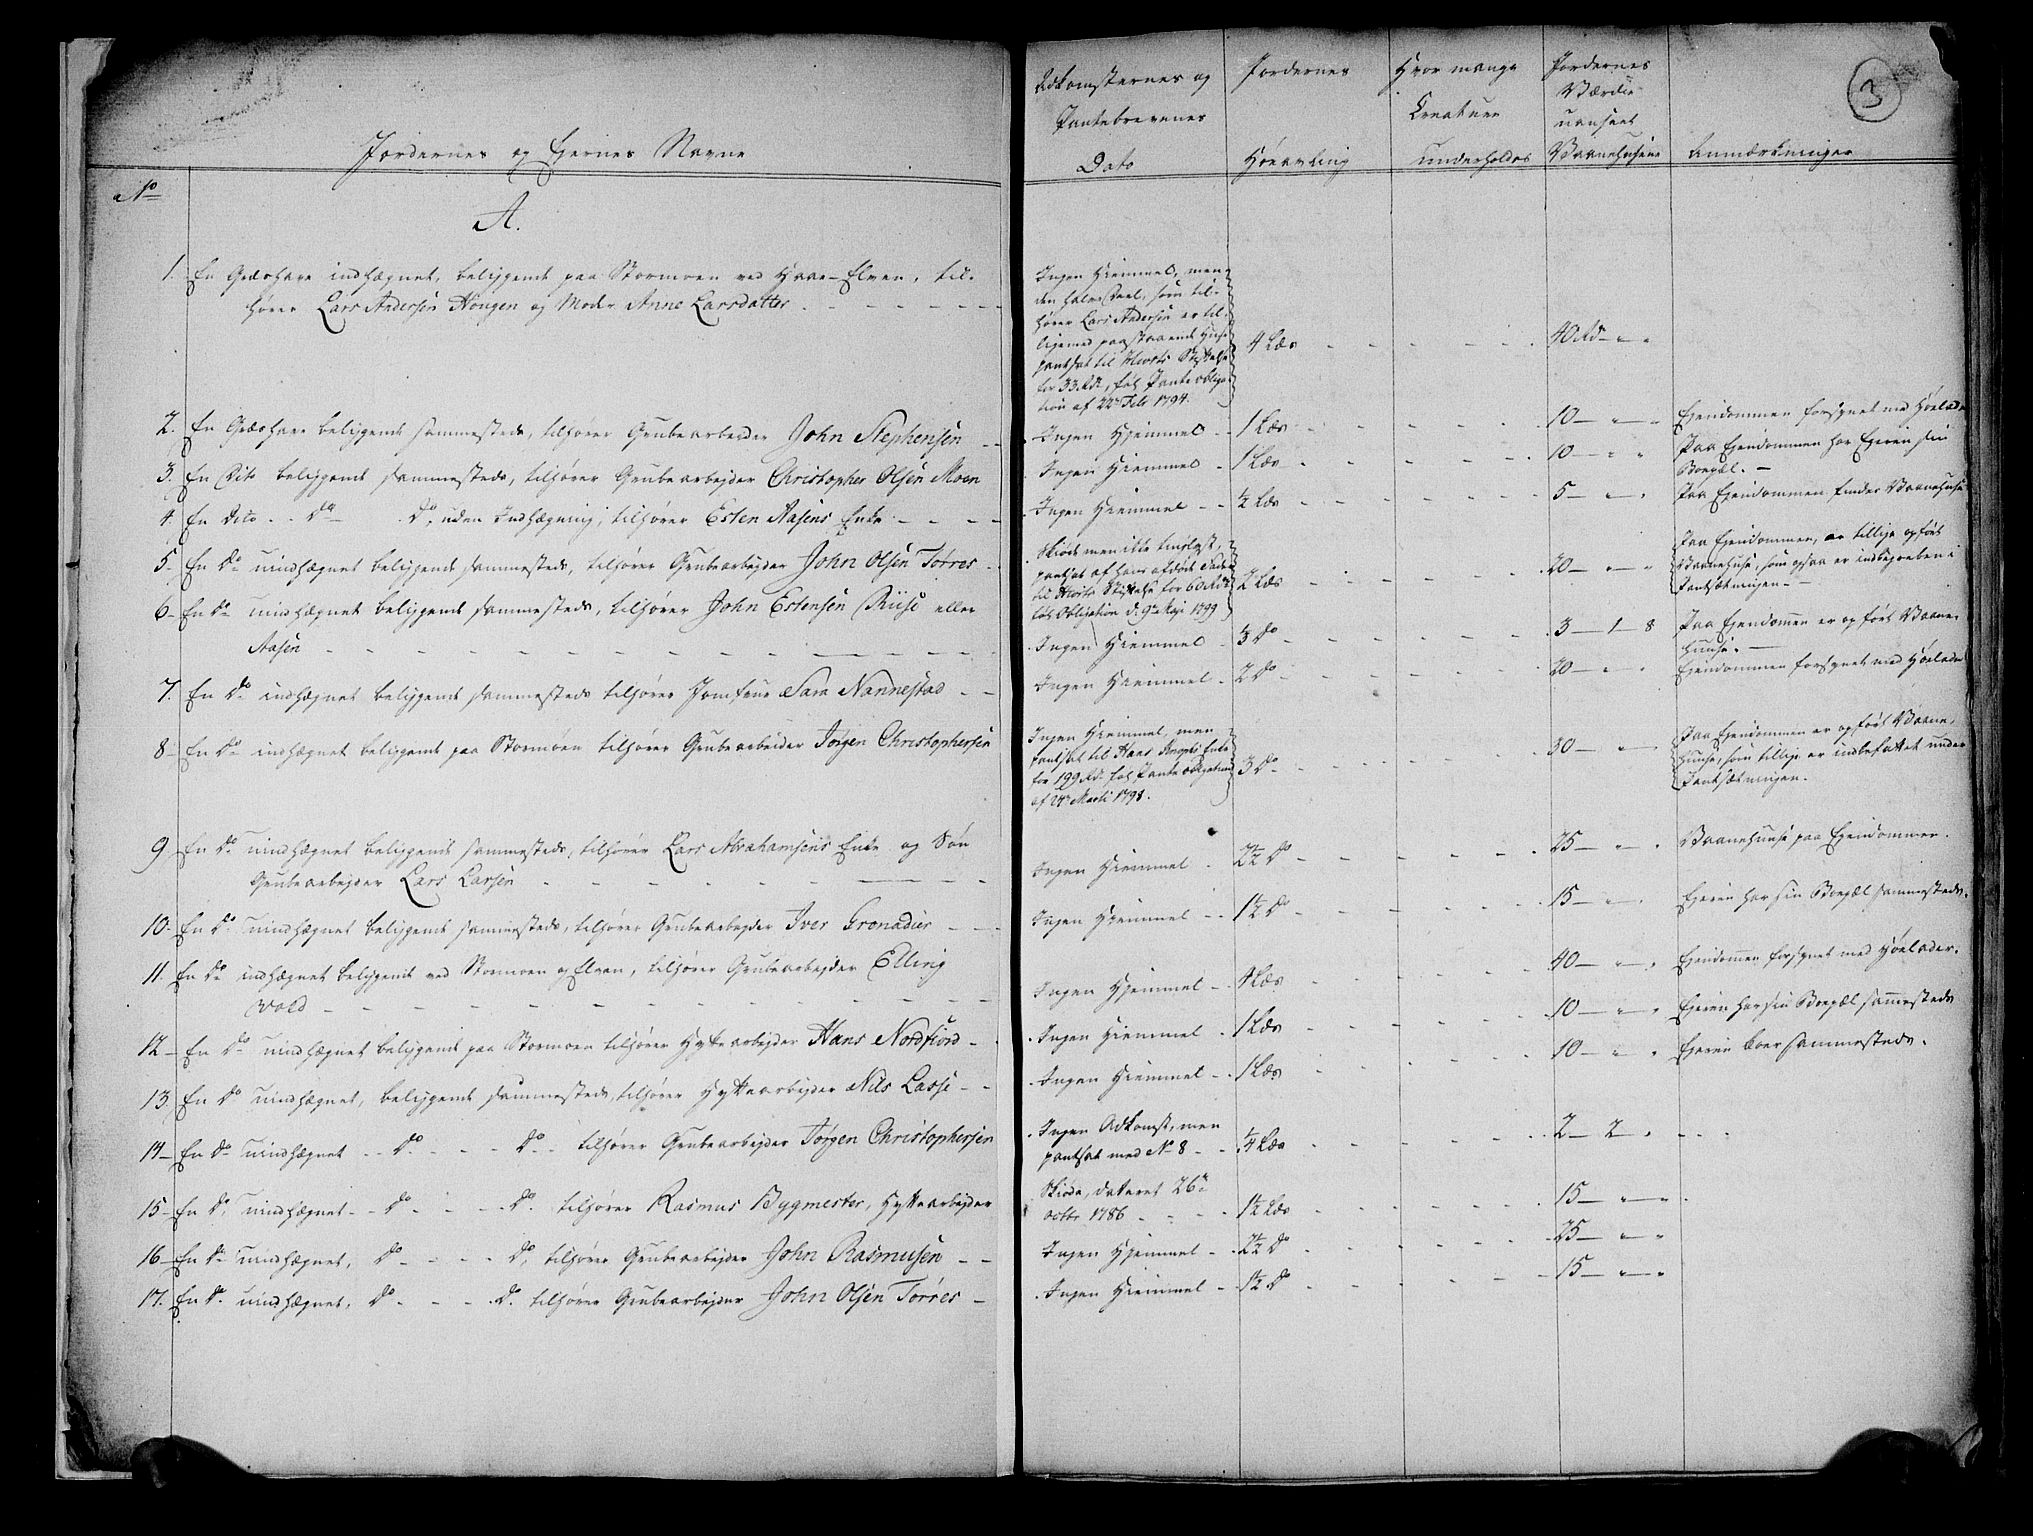 3
Jordernes og Ejernes Navne
No
A.
1. En Græshave indhægnet, beliggende paa Stormoen ved Hraae-Elven, til-
hører Lars Andersen Hougen og Moder Anne Larsdatter
2. En Græshave beliggende sammesteds, tilhører Grubearbejder John Stephensen
3. En Dito beliggende sammesteds, tilhører Grubearbejder Christopher Olsen Moen
4. En Dito - - Do - Do, uden Indhægning, tilhører Esten Aasens Enke
5. En Do uindhægnet beliggende sammesteds, tilhører Grubearbejder John Olsen Torres
6. En Do uindhægnet beliggende sammesteds, tilhører John Estensen Riise eller
Aasen
7. En Do indhægnet beliggende sammesteds tilhører Jomfrue Sara Nannestad
8. En Do indhægnet beliggende paa Stormoen tilhører Grubearbeider Jørgen Christophersen
9 En Do uindhægnet beliggende sammesteds, tilhører Lars Abrahamsens Enke og Søn
Grubearbejder Lars Larsen
10. En Do uindhægnet beliggende sammesteds, tilhører Grubearbejder Iver Gronadier
11. En Do indhægnet beliggende ved Stormoen og Elven, tilhører Grubearbejder Elling
Wold
12 En Do uindhægnet beliggende paa Stormoen tilhører Hyttearbejder Hans Nordfiord
13 En Do uindhægnet, beliggende sammesteds, tilhører Hyttearbejder Nils Lasse
14 En Do uindhægnet - - Do - - Do - - tilhører Grubearbejder Jørgen Christophersen
15 En Do, uindhægnet - - Do - - Do. tilhører Rasmus Bygmester, Hyttearbejder
16 En Do uindhægnet, Do - - Do, tilhører Grubearbejder John Rasmusen
17. En Do. uindhægnet, Do - - Do. tilhører Grubearbejder John Olsen Torres
Adkomsternes og
Pantebrevenes
Dato
Jordernes
Høeavling
Hvor mange
Creature
underholdes
Jordernes
Værdie
uanseet
Vaanehusene
Anmærkninger
Ingen Hiemmel, men
den halve Deel, som til-
hører Lars Andersen er til-
ligemed paastaaende Huse
pantsat til Hiorts Stiftelse
for 33 Rd, føl. Pante obliga-
tion af 22de Feb 1794.
4 Læs
40 Rd
Ingen Hjemmel
1 Læs
10
Ejendommen forsynet med Høelade
Ingen Hiemmel
1 Læs
10
Paa Ejendommen har Ejeren sin
Boepæl.
Ingen Hiemmel
1/2 Læs
5
Paa Ejendommen findes Vaanehuse
Skiøde men ikke tinglyst,
pantsat af hans afdøde Fader
til Hiorts Stiftelse for 60 Rd
føl. Obligation d. 9de Maji 1799
2 Læs
20
Paa Ejendommen, er tillige opført
Vaanehuse, som ogsaa er indbegreben i
Pantsætningen.
Ingen Hiemmel
1/3 Do
3 - 1 - 8
Paa Ejendommen er opført Vaane-
huse.
Ingen Hiemmel
2 Do
20
Ejendommen forsynet med Høelade
Ingen Hiemmel, men
pantsat til Hans Knophs Enke
for 199 Rd. føl. Pante obligation
af 24de Marti 1798.
3 Do
30
Paa Ejendommen er opført Vaane-
huse, som tillige er indbefattet under
Pantsætningen.
Ingen Hiemmel
2 1/2 Do
25
Vaanehuuse paa Ejendommen.
Ingen Hjemmel
1 1/2 Do
15
Ejeren har sin Boepæl sammesteds.
Ingen Hjemmel
4 Læs
40
Ejendommen forsynet med Høelader.
Ingen Hiemmel
1 Læs
10
Ejeren har sin Boepæl sammesteds
Ingen Hiemmel
1 Læs
10
Ejeren boer sammesteds.
Ingen Adkomst, men
pantsat med No 8
1/4 Læs
2 - 2
Skiøde, dateret 26de
octbr 1786
1 1/2 Læs
15
Ingen Hjemmel
2 1/2 Do
25
Ingen Hiemmel
1 1/2 Do
15